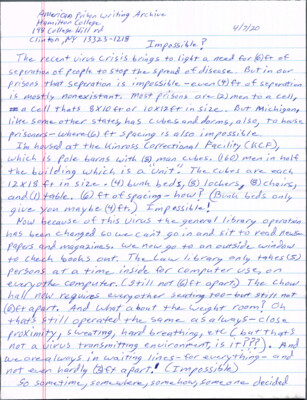 American Prison Writing Archive
Hamilton College
198 College Hill rd
Clinton, NY 13323-1218
4/7/20
Impossible?
The recent virus crisis brings to light a need for (6) ft of
seperation of people to stop the spread of disease. But in our
prisons that seperation is impossible - even (4) ft of seperation
is mostly nonexistant. Most prisons are (2) men to a cell,
in a cell thats 8x10 ft or 10x12 ft in size. But Michigan,
like some other states, has cubes and dorms, also, to house
prisoners - where (6) ft spacing is also impossible
Im housed at the Kinross Correctional Facility (KCF),
which is pole barns with (8) man cubes. (160) men in half
the building which is a unit. The cubes are each
12x18 ft in size. (4) bunk beds, (8) lockers, (8) chairs,
and (1) table. (6) ft of spacing - how? (Bunk beds only
give you maybe (4) ft.) Impossible!
Now because of this virus the general library operation
has been changed so we can't go in and sit to read news-
papers and magazines. We now go to an outside window
to check books out. The Law library only takes (5)
persons at a time inside for computer use, on
every other computer. (Still not (6) ft apart). The chow
hall now requires every other seating too - but still not
(6) ft apart. And what about the weight room? Oh
that's still operated the same as always - close
proximity, sweating, hard breathing, etc (but thats
not a virus transmitting environment, is it???). And
we are always in waiting lines - for everything - and
not even hardly (2) ft apart! (Impossible)
So sometime, somewhere, somehow, someone decided